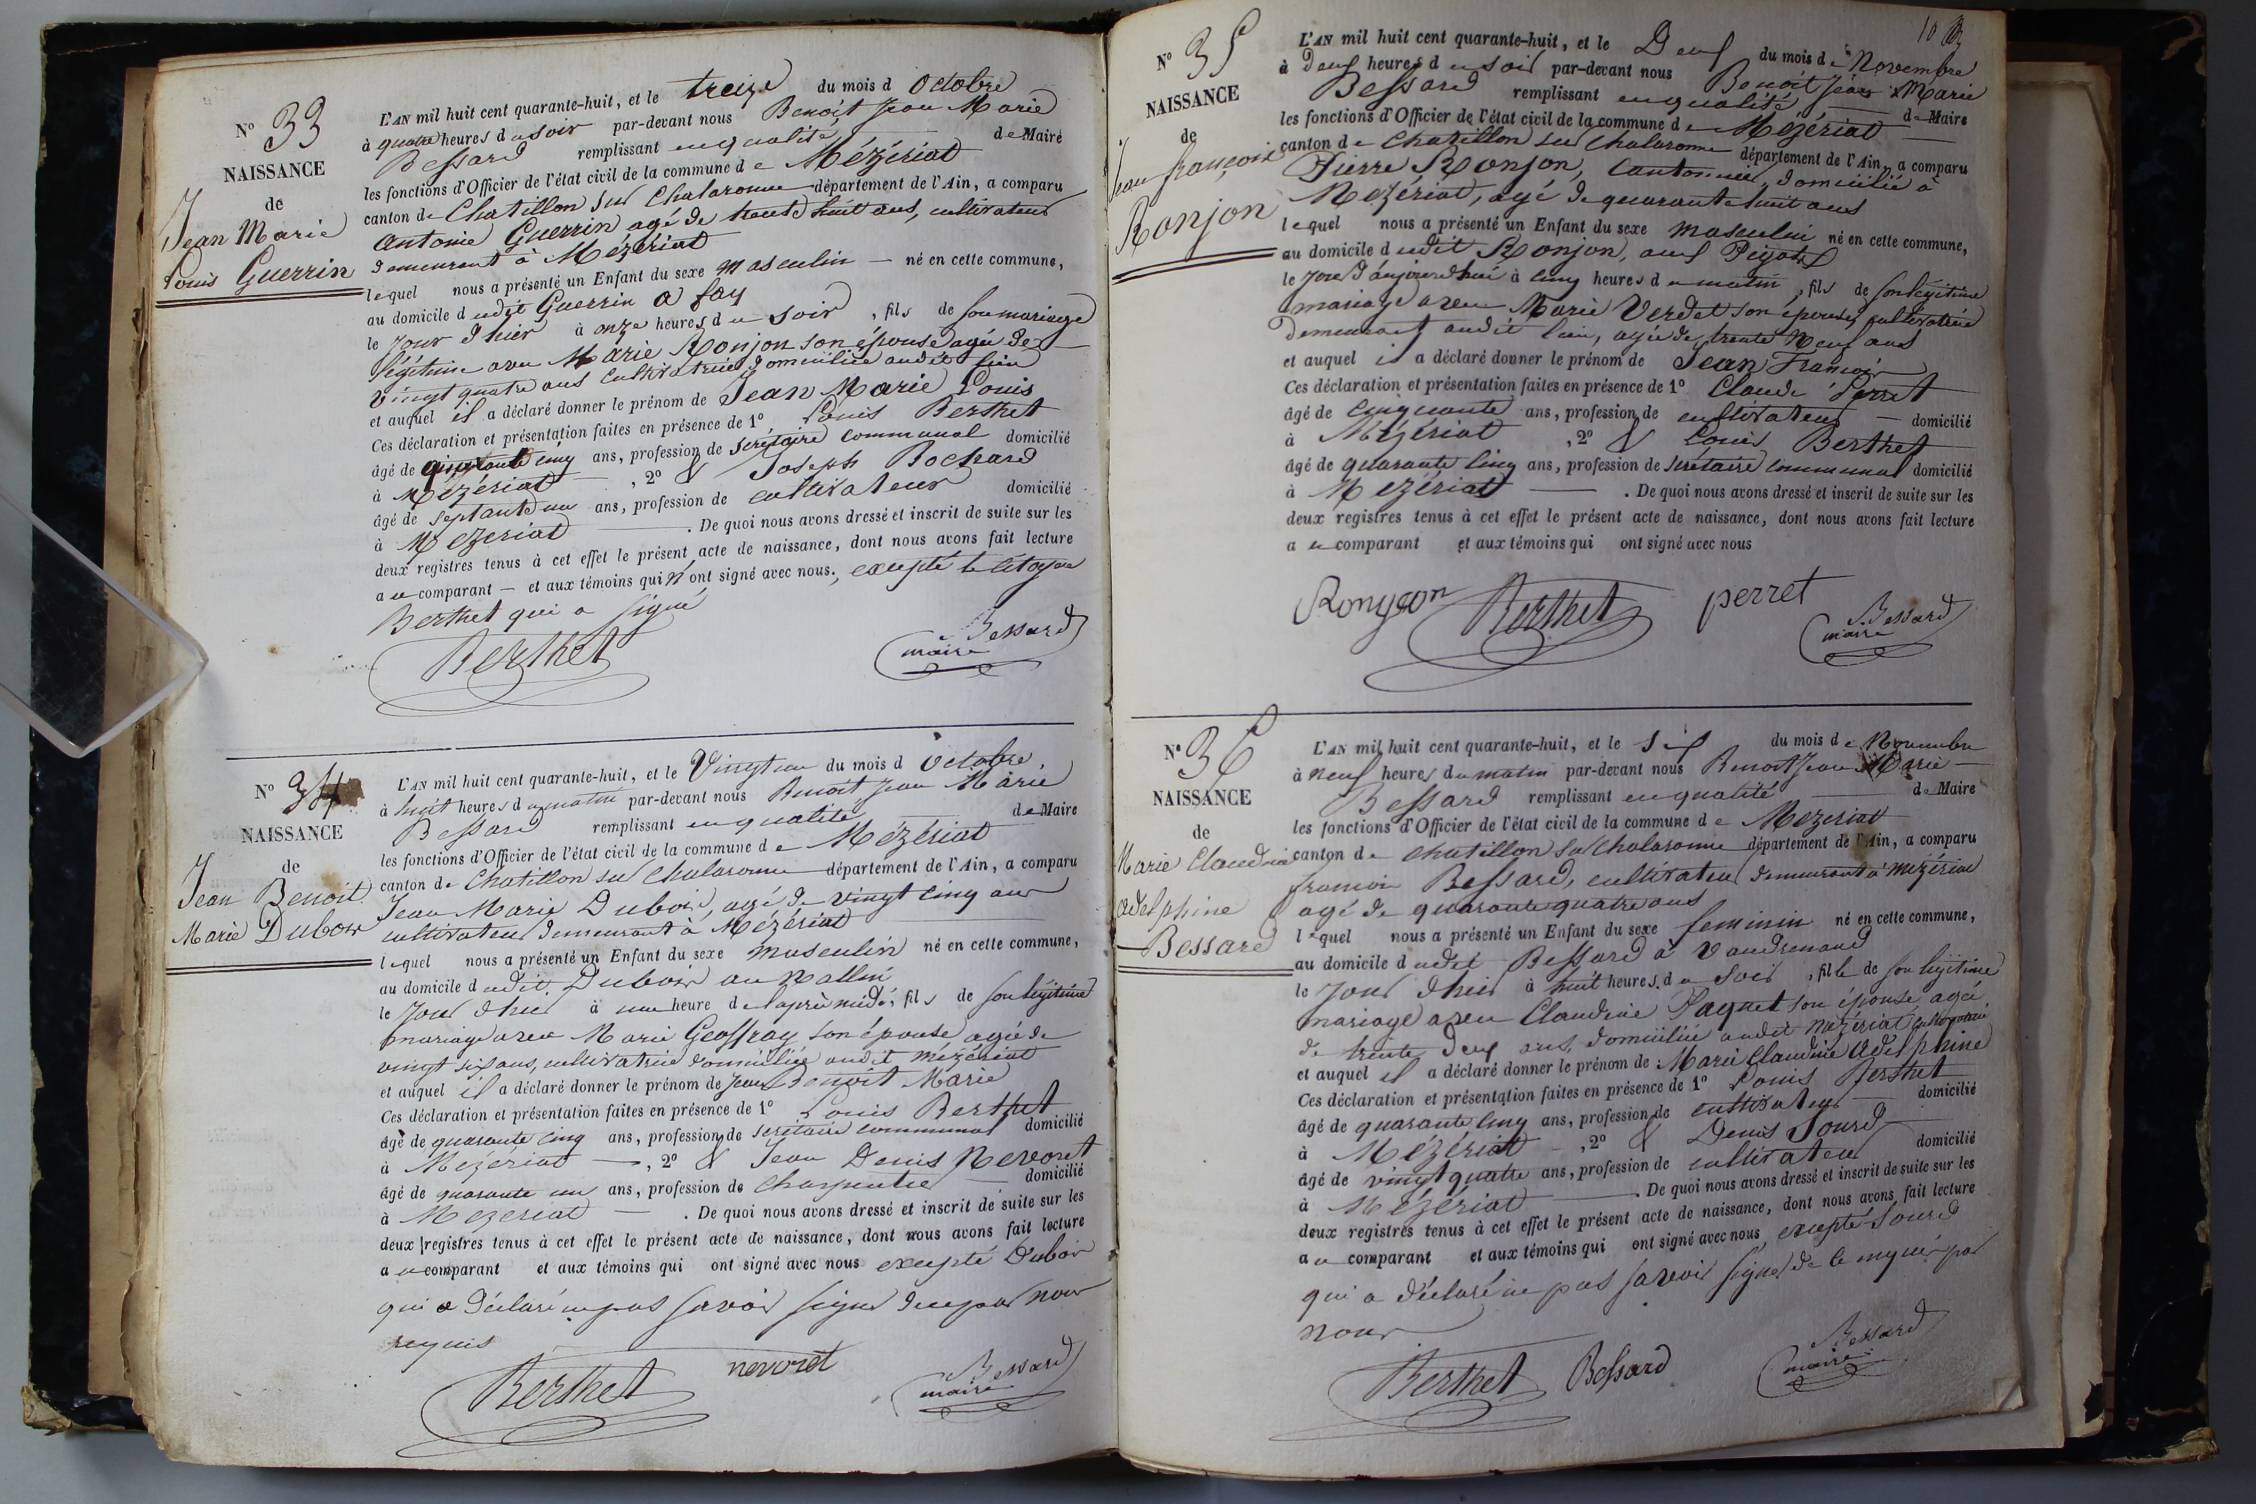 N° 33
NAISSANCE
de
Jean Marie
Louis Guerrin
L'AN mil huit cent quarante-huit, et le treize du mois d Octobre
à quatre heures du soir par-devant nous Benoit Jean Marie
Bessard remplissant en qualité de Maire
les fonctions d'Officier de l'état civil de la commune de Mézériat
canton de Chatillon sur Chalaronne département de l'Ain, a comparu
Antoine Guerrin agé de trente huit ans, cultivateur
demeurant à Mézériat
lequel nous a présenté un Enfant du sexe masculin né en cette commune,
au domicile dudit Guerrin a fay
le jour d'hier à onze heures du soir, fils de son mariage
légitime avec Marie Ronjon son épouse agée de
vingt quatre ans cultivatrice domiciliée audit lieu
et auquel il a déclaré donner le prénom de Jean Marie Louis
Ces déclaration et présentation faites en présence de 1° Louis Berthet
âgé de quarante cinq ans, profession de secrétaire communal domicilié
à Mézériat, 2° & Joseph Pochard
âgé de septante un ans, profession de cultivateur domicilié
à Mézériat. De quoi nous avons dressé et inscrit de suite sur les
deux registres tenus à cet effet le présent acte de naissance, dont nous avons fait lecture
au comparant — et aux témoins qui n'ont signé avec nous, excepté le citoyen
Berthet qui a signé
Berthet Bessard
maire
N° 34
NAISSANCE
de
Jean Benoit
Marie Dubois
L'AN mil huit cent quarante-huit, et le Vingt un du mois d octobre,
à huit heures du matin par-devant nous Benoit Jean Marie
Bessard remplissant en qualité de Maire
les fonctions d'Officier de l'état civil de la commune de Mézériat
canton de Chatillon sur Chalaronne département de l'Ain, a comparu
Jean Marie Dubois, agé de vingt cinq ans
cultivateur demeurant à Mézériat
lequel nous a présenté un Enfant du sexe masculin né en cette commune,
au domicile dudit Dubois au
le jour d'hier à une heure de l'après midi, fils de son légitime
mariage avec Marie Geoffray son épouse agée de
vingt six ans, cultivatrice domiciliée audit Mézériat
et auquel il a déclaré donner le prénom de Jean Benoit Marie
Ces déclaration et présentation faites en présence de 1° Louis Berthet
âgé de quarante cinq ans, profession de secrétaire communal domicilié
à Mézériat —, 2° & Jean Denis Nevoret
âgé de quarante un ans, profession de charpentier domicilié
à Mézériat — . De quoi nous avons dressé et inscrit de suite sur les
deux registres tenus à cet effet le présent acte de naissance, dont nous avons fait lecture
au comparant et aux témoins qui ont signé avec nous excepté Dubois
qui a déclaré ne pas savoir signer de ce par nous
requis
Berthet nevoret Bessard
maire
10
N° 35
NAISSANCE
de
Jean françois
Ronjon
L'AN mil huit cent quarante-huit, et le Deux du mois de Novembre
à deux heures du soir par-devant nous Benoit Jean Marie
Bessard remplissant en qualité de Maire
les fonctions d'Officier de l'état civil de la commune de Mézériat
canton de Chatillon sur Chalaronne département de l'Ain, a comparu
Pierre Ronjon, cantonnier, domicilié à
Mézériat, agé de quarante huit ans
lequel nous a présenté un Enfant du sexe masculin né en cette commune,
au domicile dudit Ronjon, aux
le jour d'aujourd'hui à cinq heures du matin, fils de son légitime
mariage avec Marie Verdet son épouse, cultivatrice
demeurant audit lieu, agée de trente neuf ans
et auquel il a déclaré donner le prénom de Jean François
Ces déclaration et présentation faites en présence de 1° Claude Perret
âgé de cinquante ans, profession de cultivateur domicilié
à Mézériat, 2° & Louis Berthet
âgé de quarante cinq ans, profession de secrétaire communal domicilié
à Mézériat — . De quoi nous avons dressé et inscrit de suite sur les
deux registres tenus à cet effet le présent acte de naissance, dont nous avons fait lecture
au comparant et aux témoins qui ont signé avec nous
Ronyeon Berthet perret Bessard
maire
N° 36
NAISSANCE
de
Marie Claudine
adelphine
Bessard
L'AN mil huit cent quarante-huit, et le six du mois de Novembre
à neuf heures du matin par-devant nous Benoit Jean Marie
Bessard remplissant en qualité de Maire
les fonctions d'Officier de l'état civil de la commune de Mézériat
canton de Chatillon sur Chalaronne département de l'Ain, a comparu
françois Bessard, cultivateur demeurant à Mézériat
agé de quarante quatre ans
lequel nous a présenté un Enfant du sexe feminin né en cette commune,
au domicile dudit Bessard à Vaudrenand
le jour d'hier à huit heures du soir, fille de son légitime
mariage avec Claudine Paquet son épouse agée
de trente deux ans, domiciliée audit Mézériat cultivatrice
et auquel il a déclaré donner le prénom de Marie Claudine Adelphine
Ces déclaration et présentation faites en présence de 1° Louis Berthet
âgé de quarante cinq ans, profession de cultivateur domicilié
à Mézériat, 2° & Denis Sourd
âgé de vingt quatre ans, profession de cultivateur domicilié
à Mézériat — . De quoi nous avons dressé et inscrit de suite sur les
deux registres tenus à cet effet le présent acte de naissance, dont nous avons fait lecture
au comparant et aux témoins qui ont signé avec nous excepté Sourd
qui a déclaré ne pas savoir signer de ce enquis par
nous
Berthet Bessard Bessard
maire